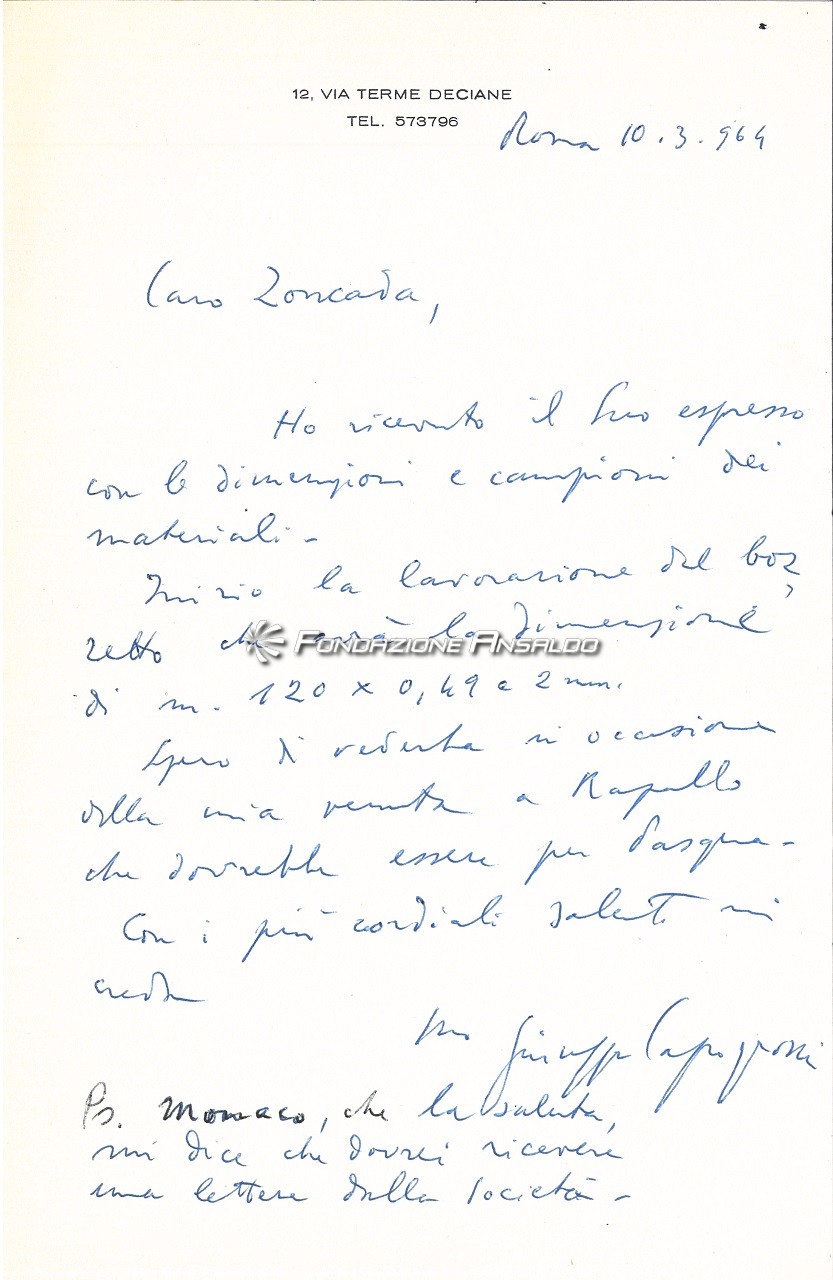 12, VIA TERME DECIANE
TEL. 573796
Roma 10.3.964
Caro Zoncada,
Ho ricevuto il Suo espresso
con le dimensioni e campioni dei
materiali -
Inizio la lavorazione del boz,
zetto che avrà la dimensione
FONDAZIONE ANSALDO
di m. 120 x 0,49 e 2 mm.
Spero di vederla in occasione
della mia venuta a Rapallo
che dovrebbe essere per Pasqua -
Con i più cordiali saluti mi
creda
Suo Giuseppe Capogrossi
Ps. Monaco, che la saluta,
mi dice che dovrei ricevere
una lettera dalla Società -